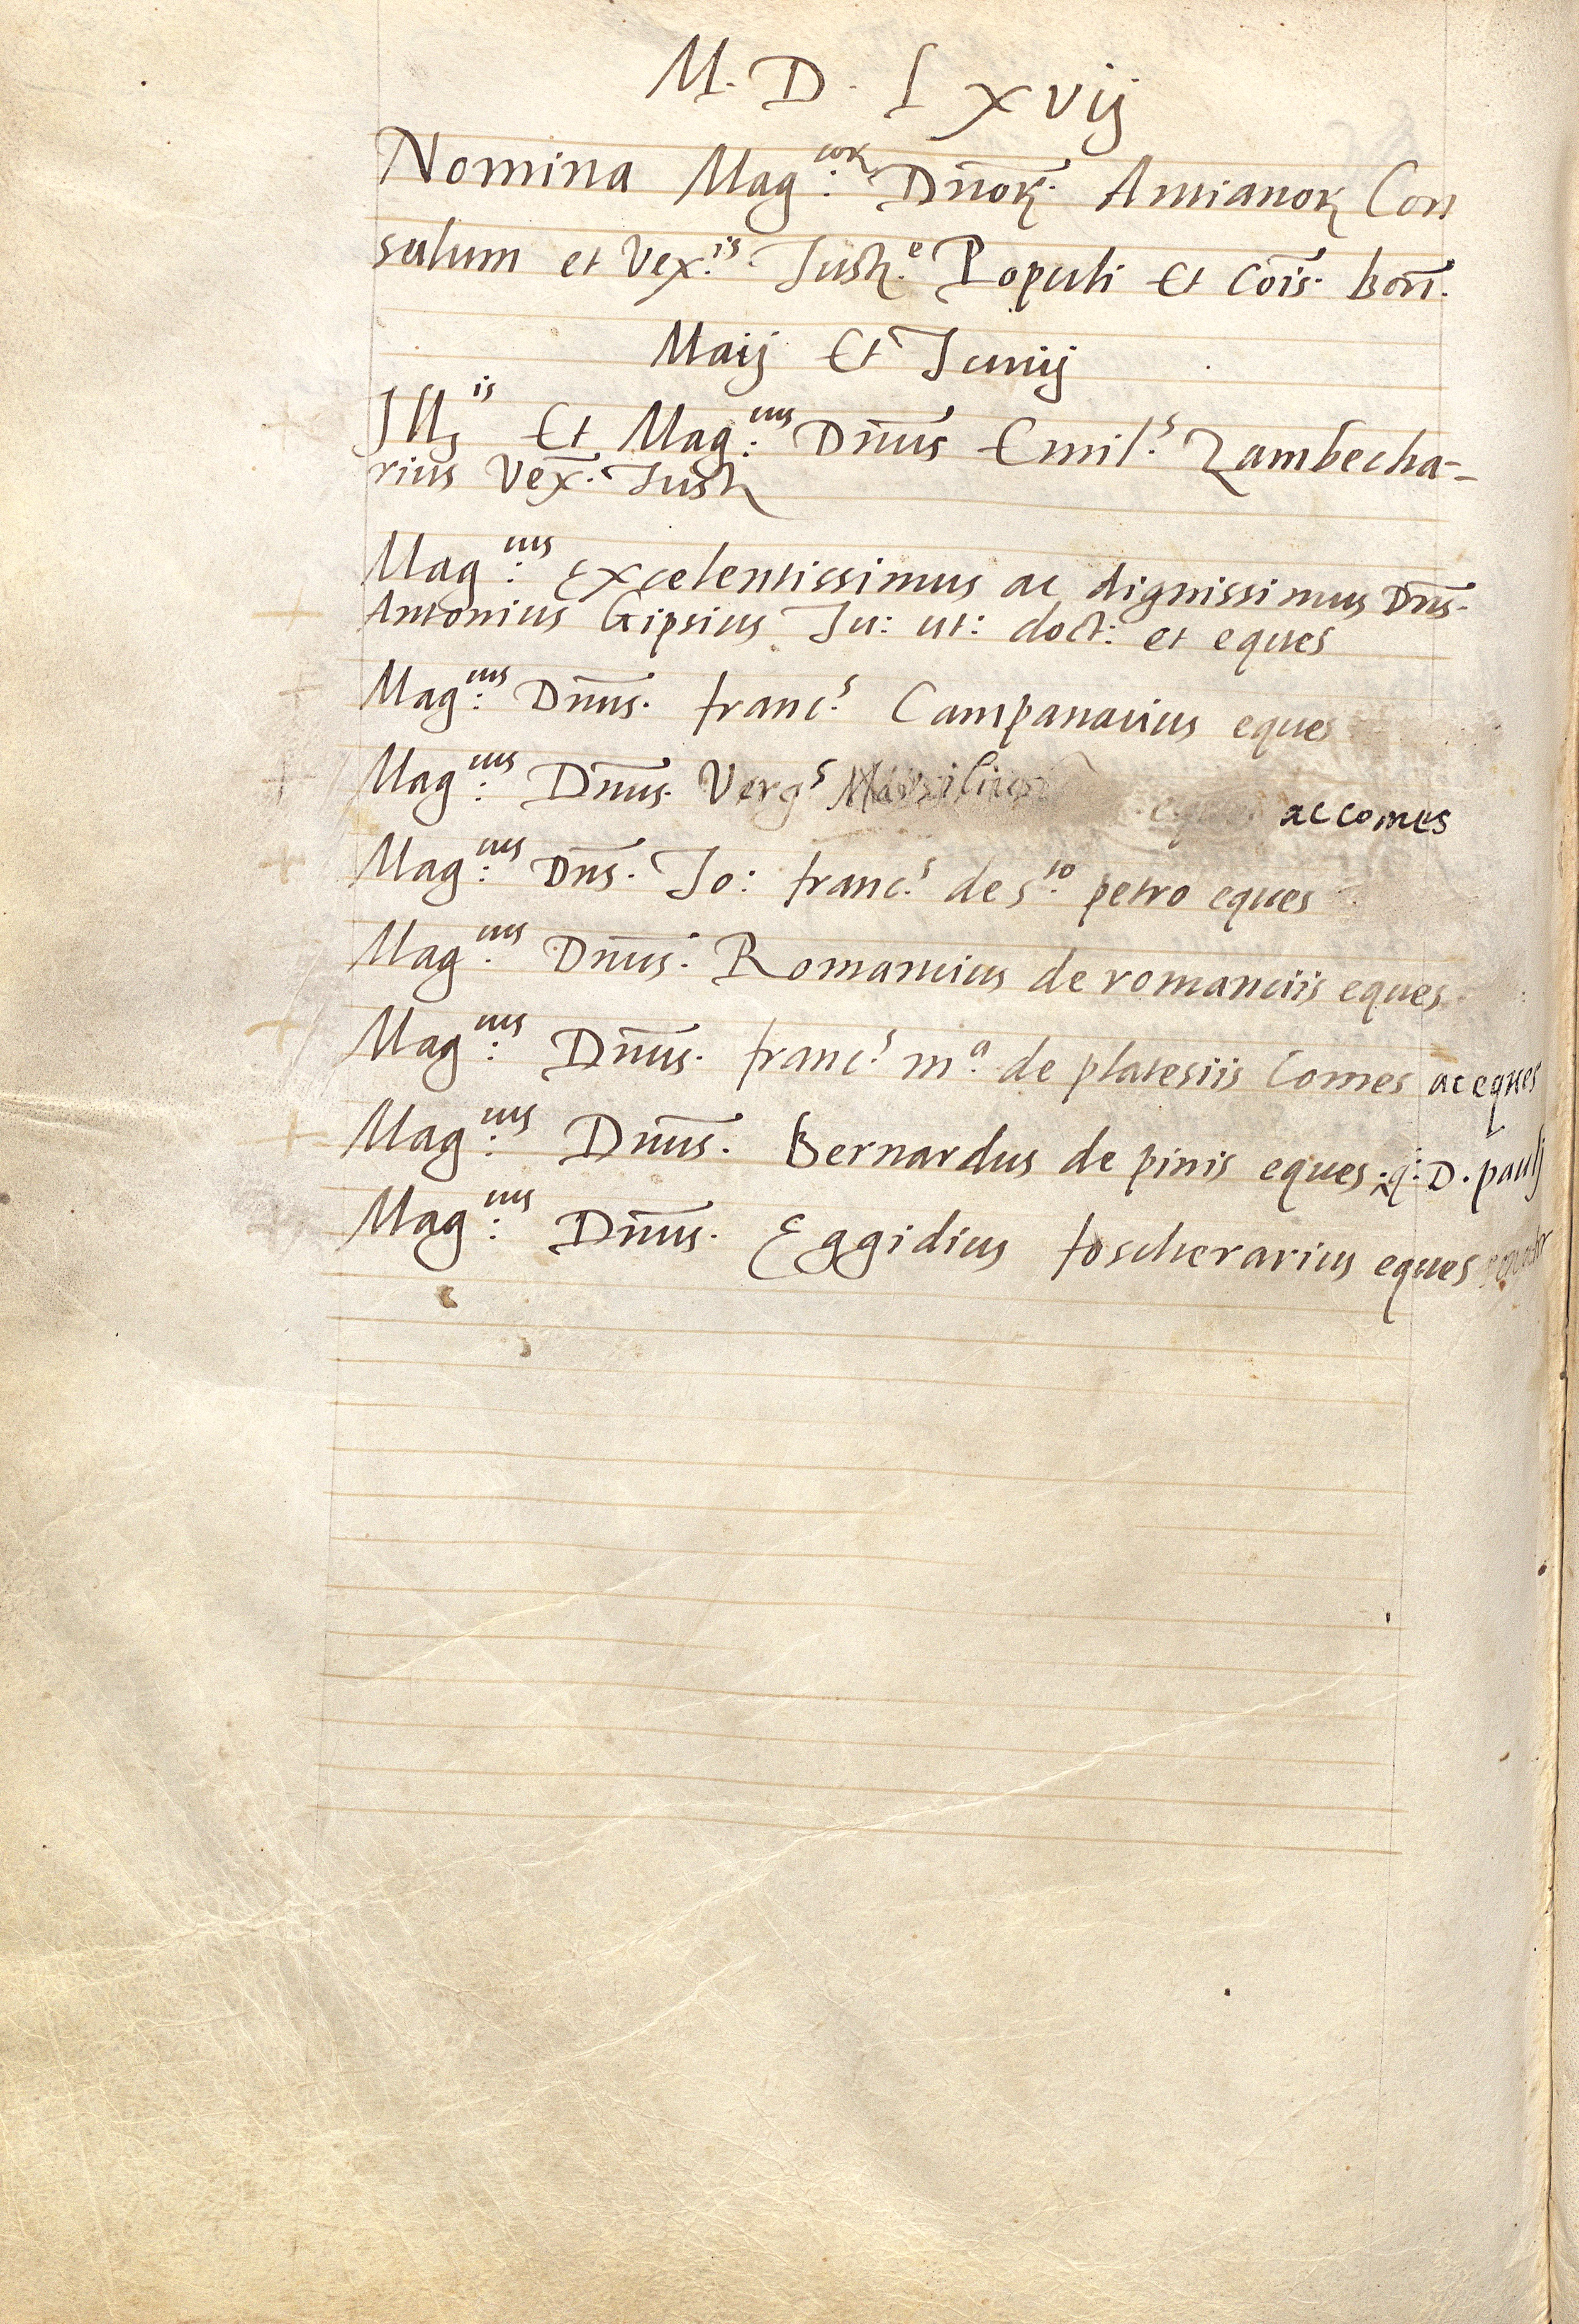 M. D. Lxvij
Nomina Mag:cor Dn̄oꝝ. Antianoꝝ Con
sulum et Vex:is Justi:e Populi et Co͞is. bon̄.
Maij Et Junij
Ill:is Et Mag:cus Dn̄us Emil:s Zambecha-
rius Vex̄. Just
Mag:cus Excelentissimus ac dignissimus Dn̄s.
Antonius Gipsius Ju: ut: doct: et eques
Mag:cus Dn̄us. franc:s Campanacius eques
Mag:cus Dn̄us. Verg:s Marsilius ac comes
Mag:cus Dn̄s. Jo: franc:s de s:to petro eques
Mag:cus Dn̄us. Romancius de romanciis eques
Mag:cus Dn̄us. franc:s m:a de platesiis Comes ac eques
Mag:cus Dn̄us. Bernardus de pinis eques :q: D. pauli
Mag:cus Dn̄us. Eggidius foscherarius eques